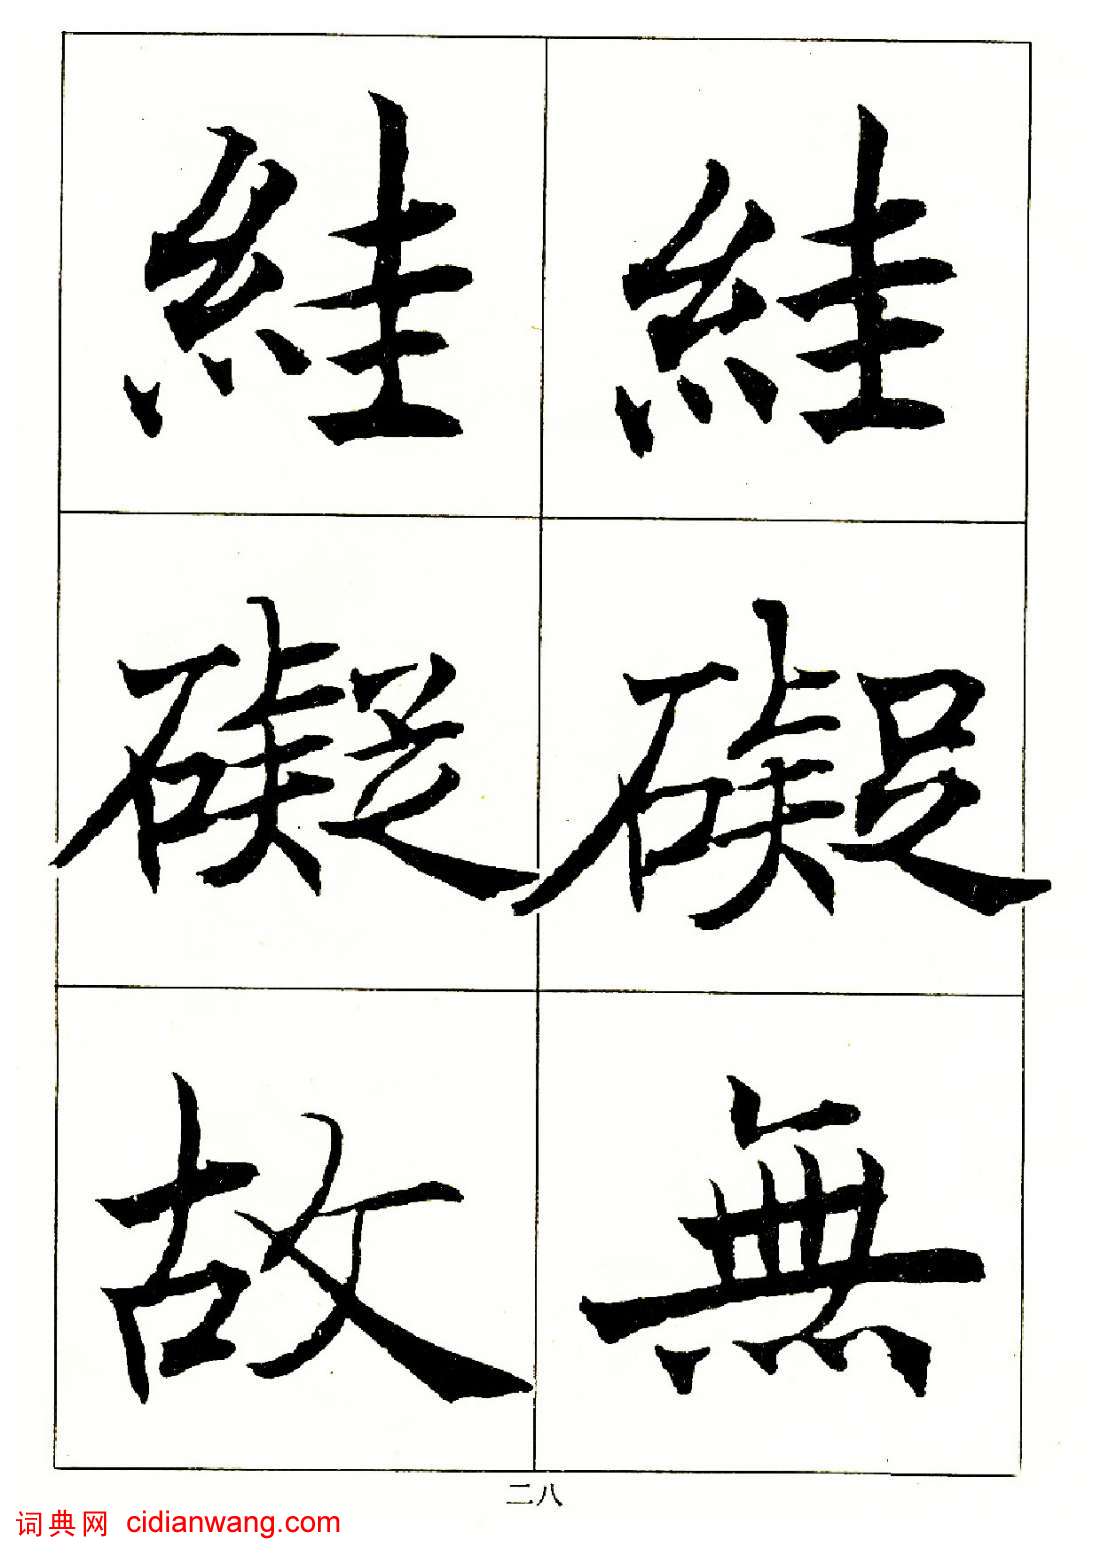 絓礙無
絓礙故
二八
词典网 cidianwang.com